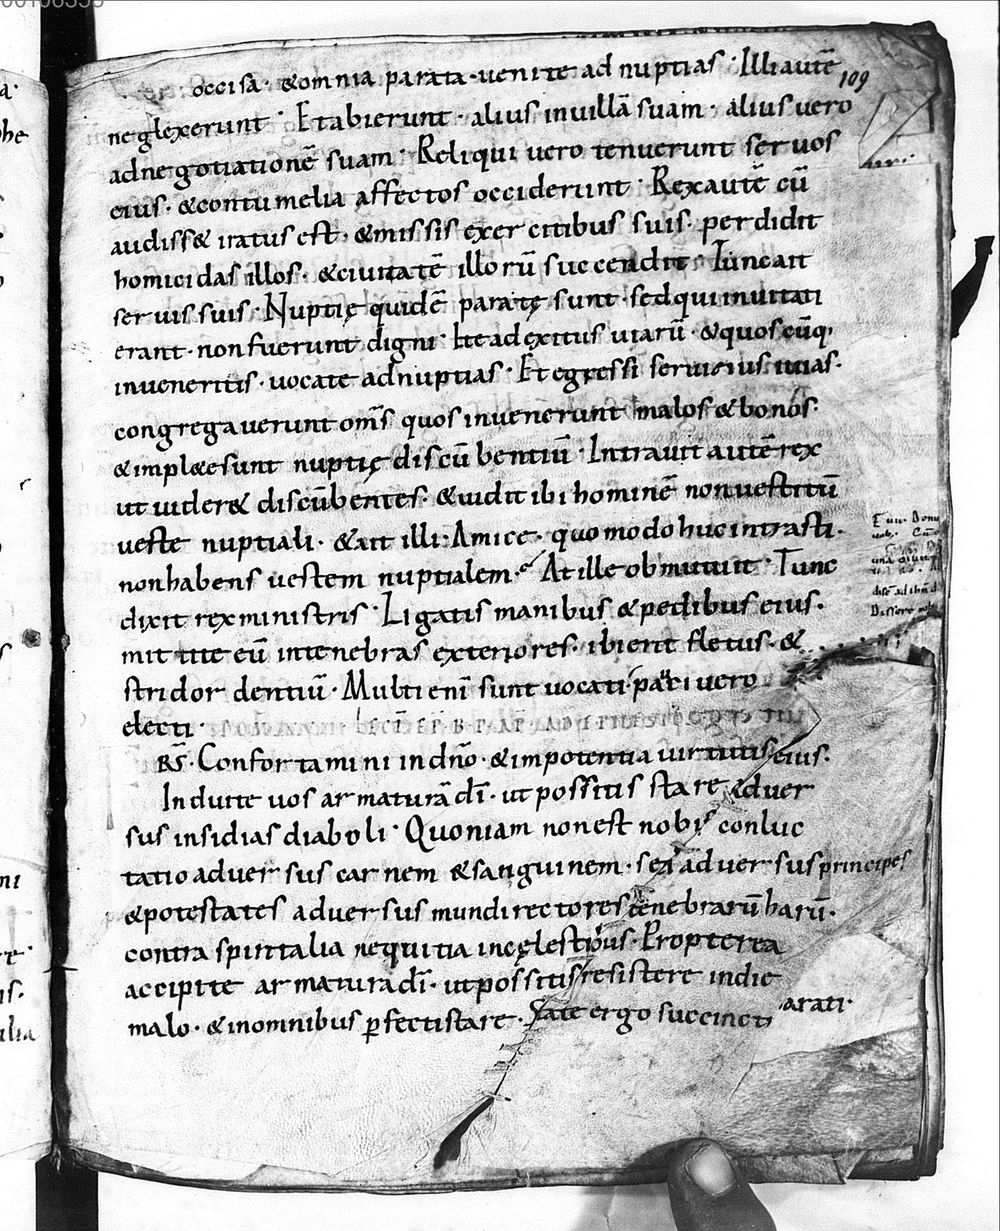 occisa. & omnia parata. uenite ad nuptias. Illi autē
109
neglexerunt. Et abierunt. alius in uillā suam. alius uero
ad negotiationē suam. Reliqui uero tenuerunt seruos
eius. & contumelia affectos occiderunt. Rex autē cū
audiss& iratus est. & missis exercitibus suis. perdidit
homicidas illos. & ciuitatē illorū succendit. Tunc ait
seruis suis. Nuptię quidē paratę sunt. sed qui inuitati
erant. non fuerunt digni. Ite ad exitus uiarū. & quoscūq;
inueneritis. uocate ad nuptias. Et egressi serui eius in uias.
congregauerunt om̄s quos inuenerunt malos & bonos.
& impl&ę sunt nuptię discūbentiū. Intrauit autē rex
ut uider& discūbentes. & uidit ibi hominē non uestitū
ueste nuptiali. & ait illi. Amice. quomodo huc intrasti.
non habens uestem nuptialem. At ille obmutuit. Tunc
dixit rex ministris. Ligatis manibus & pedibus eius.
mittite eū in tenebras exteriores. ibi erit fletus. &
stridor dentiū. Multi enī sunt uocati. pauci uero
electi.
R̄S. Confortamini in dn̄o. & in potentia uirtutis eius.
Induite uos armaturā dī. ut possitis stare aduer
sus insidias diaboli. Quoniam non est nobis conluc
tatio aduersus carnem & sanguinem. sed aduersus principes
& potestates aduersus mundi rectores tenebrarū harū.
contra spiritalia nequitia in cęlestibus. Propterea
accipite armatura dī. ut possitis resistere in die
malo. & in omnibus ꝑfecti stare. State ergo succincti
arati.